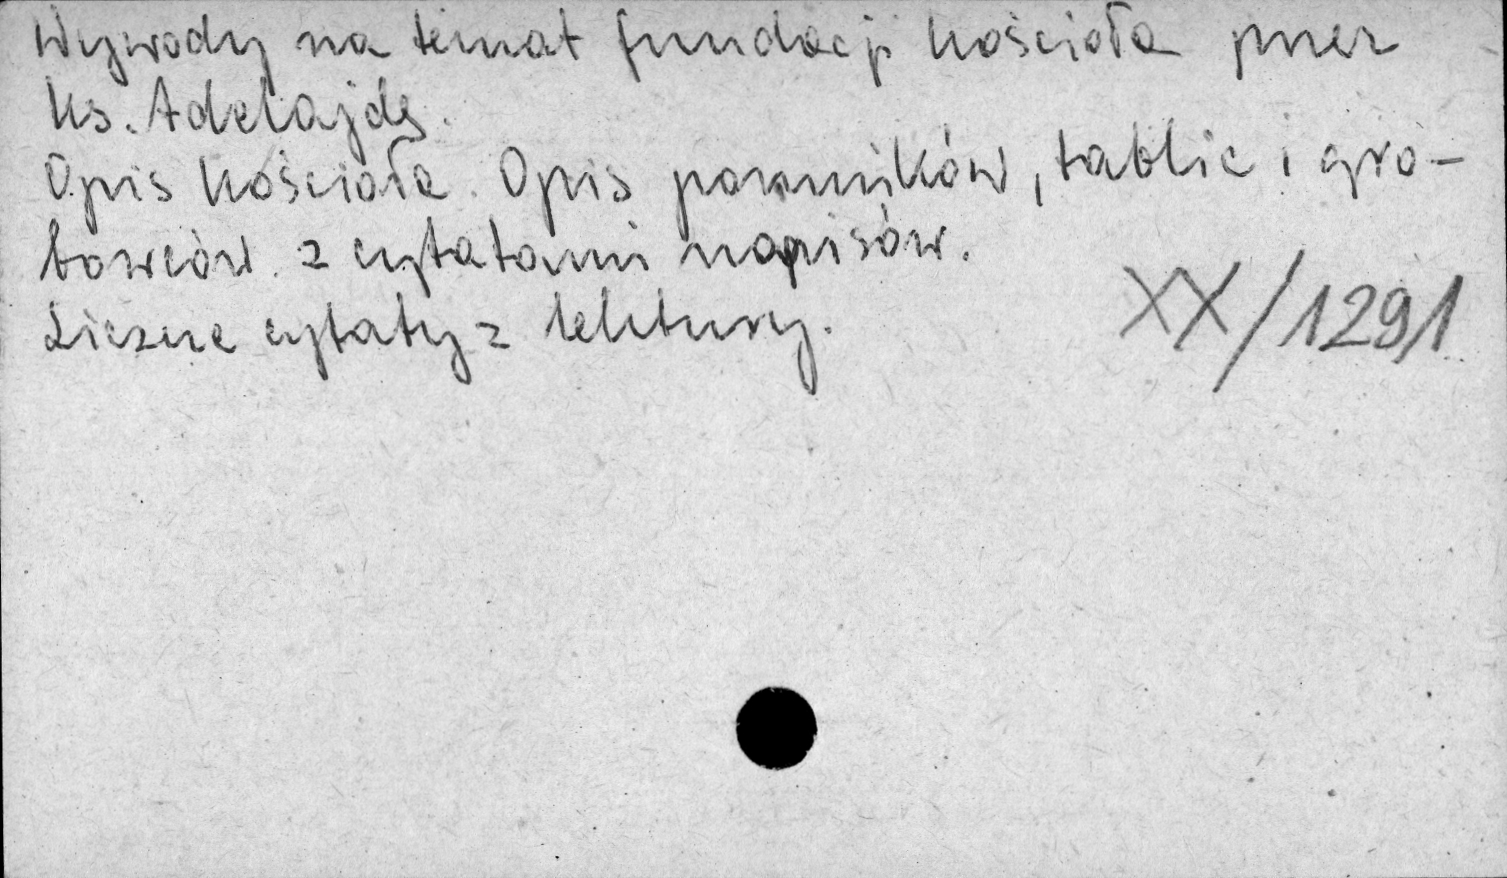 Wywody na temat fundacji kościoła przez
ks. Adelajdę.
Opis kościoła. Opis pomników, tablic i gro-
bowców z cytatami napisów.
Liczne cytaty z lektury.
XX/1291